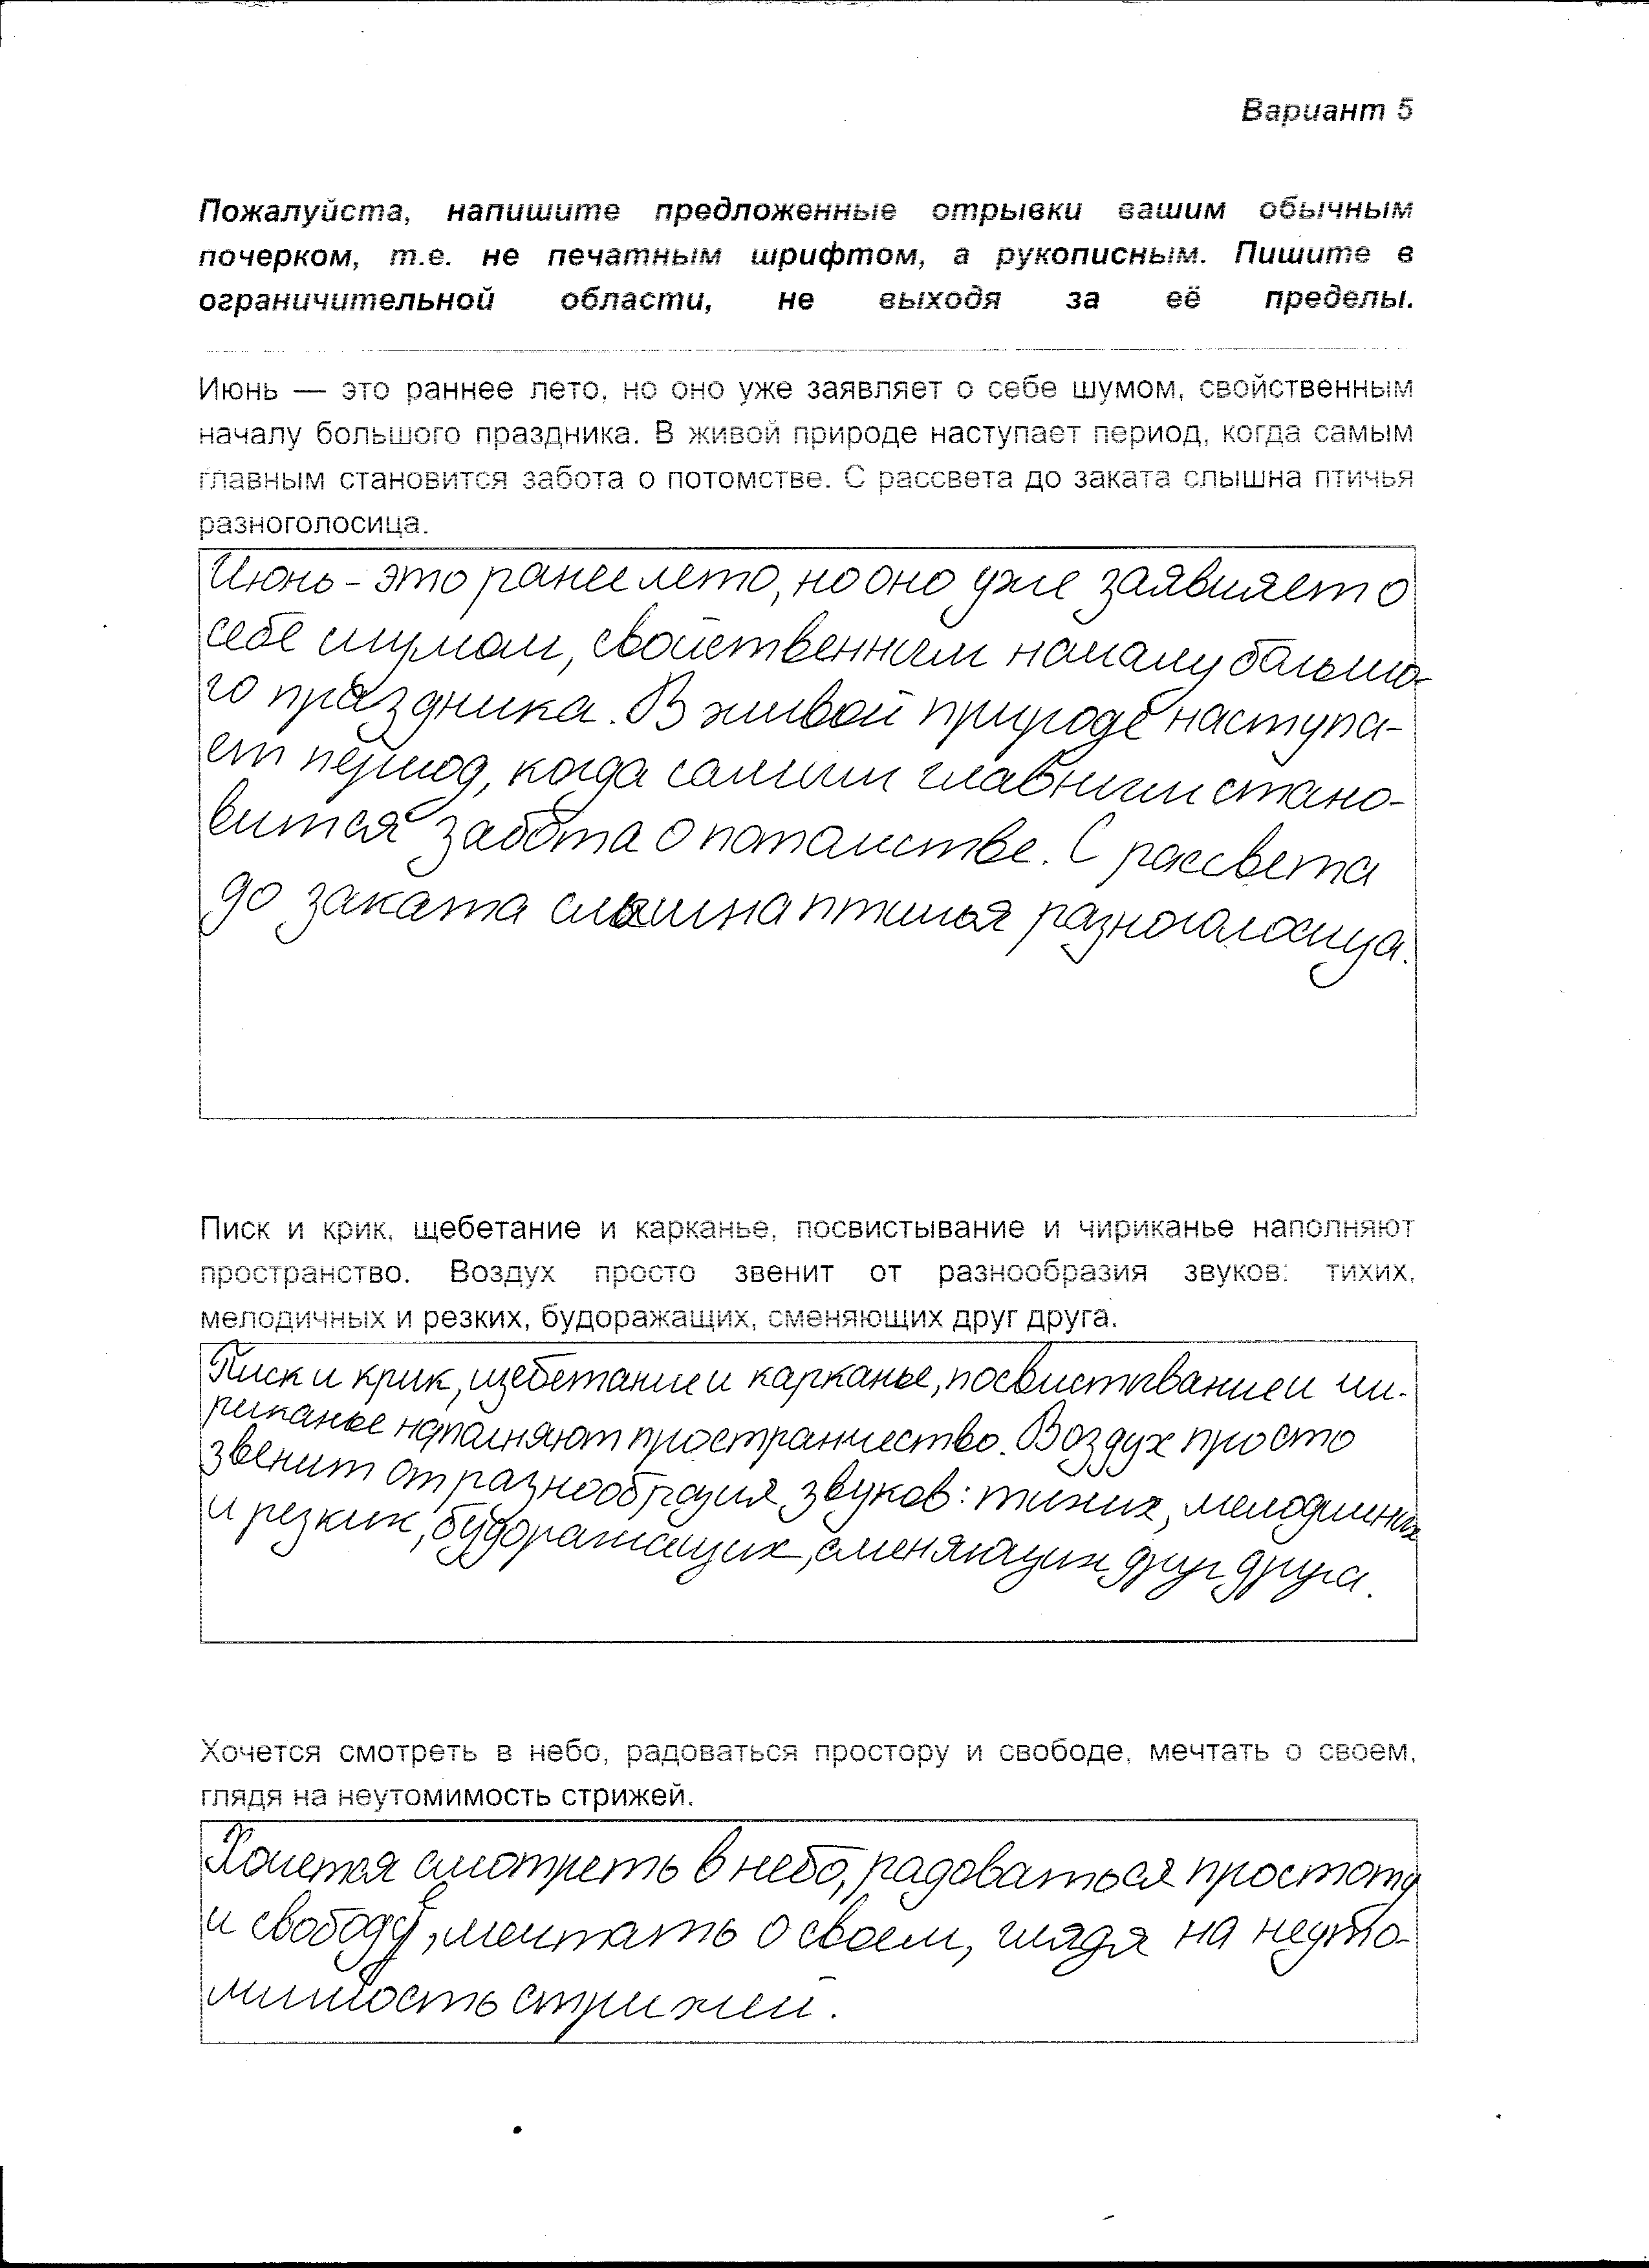 Вариант 5
Пожалуйста, напишите предложенные отрывки вашим обычным
почерком, т.е. не печатным шрифтом, а рукописным. Пишите в
ограничительной области, не выходя за её пределы.
Июнь — это раннее лето, но оно уже заявляет о себе шумом, свойственным
началу большого праздника. В живой природе наступает период, когда самым
главным становится забота о потомстве. С рассвета до заката слышна птичья
разноголосица.
Июнь - это ранее лето, но оно уже заявляет о
себе шумом, свойственным началу большо-
го праздника. В живой природе наступа-
ет период, когда самым главным стано-
вится забота о потомстве. С рассвета
до заката слышна птичья разноголосица.
Писк и крик, щебетание и карканье, посвистывание и чириканье наполняют
пространство. Воздух просто звенит от разнообразия звуков: тихих,
мелодичных и резких, будоражащих, сменяющих друг друга.
Писк и крик, щебетание и карканье, посвистывание и чи-
риканье наполняют пространчество. Воздух просто
звенит от разнообразия звуков: тихих, мелодичных
и резких, будоражащих, сменяющих друг друга.
Хочется смотреть в небо, радоваться простору и свободе, мечтать о своем,
глядя на неутомимость стрижей.
Хочется смотреть в небо, радоваться простоту
и свободе, мечтать о своем, глядя на неуто-
мимость стрижей.